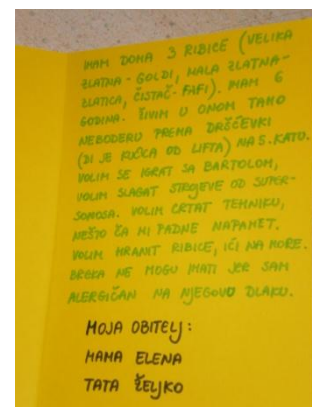 IMAM DOMA 3 RIBICE (VELIKA
ZLATNA - GOLDI, MALA ZLATNA-
ZLATICA, ČISTAČ - FAFI). IMAM 6
GODINA. ŽIVIM U ONOM TAMO
NEBODERU PREMA DRŽĆEVKI
(DI JE KUĆICA OD LIFTA) NA 5. KATU.
VOLIM SE IGRAT SA BARTOLOM,
VOLIM SLAGAT STROJEVE OD SUPER-
SONOSA. VOLIM CRTAT TEHNIKU,
NEŠTO ČA MI PADNE NAPAMET.
VOLIM HRANIT RIBICE, IĆI NA MORE.
NE MOGU IMATI JER SAM
ALERGIČAN NA NJEGOVU DLAKU.
MOJA OBITELJ:
MAMA ELENA
TATA ŽELJKO